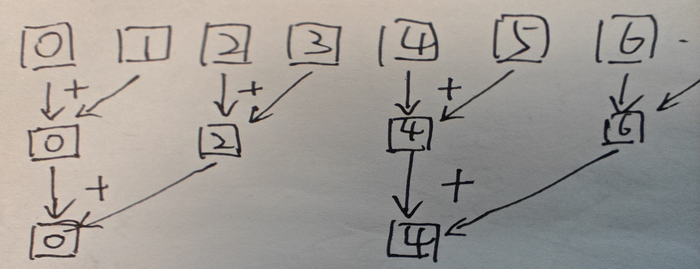 0 1 2 3 4 5 6
+ + +
0 2 4 6
+ +
0 4